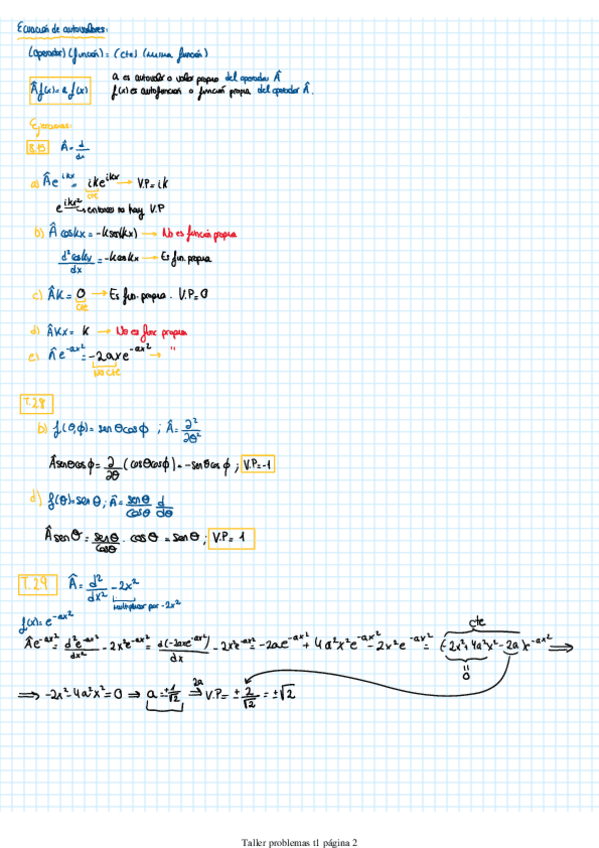 Ecuación de autovalores:
(operador)(función) = (cte)(misma función)
Âf(x) = a f(x)
a es autovalor o valor propio del operador Â
f(x) es autofunción o función propia del operador Â.
Ejercicios:
8.19 Â = d/dx
a) Âe^ikx = ike^ikx → V.P = ik
cte
e^ikx² → entonces no hay V.P
b) Â coskx = -ksen(kx) → No es función propia
d²coskx/dx = -kcoskx → Es fun. propia
c) Âk = 0 → Es fun. propia. V.P = 0
cte
d) Âkx = k → No es func propia
e) Âe^-ax² = -2axe^-ax² → "
No cte
T.28
b) f(θ,ϕ) = senθcosϕ ; Â = ∂²/∂θ²
Âsenθcosϕ = ∂/∂θ (cosθcosϕ) = -senθcosϕ ; V.P = -1
d) f(θ) = senθ ; Â = senθ/cosθ d/dθ
Âsenθ = senθ/cosθ · cosθ = senθ ; V.P = 1
T.29 Â = d²/dx² - 2x²
Multiplicar por -2x²
f(x) = e^-ax²
cte
Âe^-ax² = d²e^-ax²/dx² - 2x²e^-ax² = d(-2axe^-ax²)/dx - 2x²e^-ax² = -2ae^-ax² + 4a²x²e^-ax² - 2x²e^-ax² = (-2x²+4a²x²-2a)e^-ax² ⟹
0
⟹ -2x²-4a²x² = 0 ⟹ a = ±1/√2 2a→ V.P = ±2/√2 = ±√2
Taller problemas t1 página 2